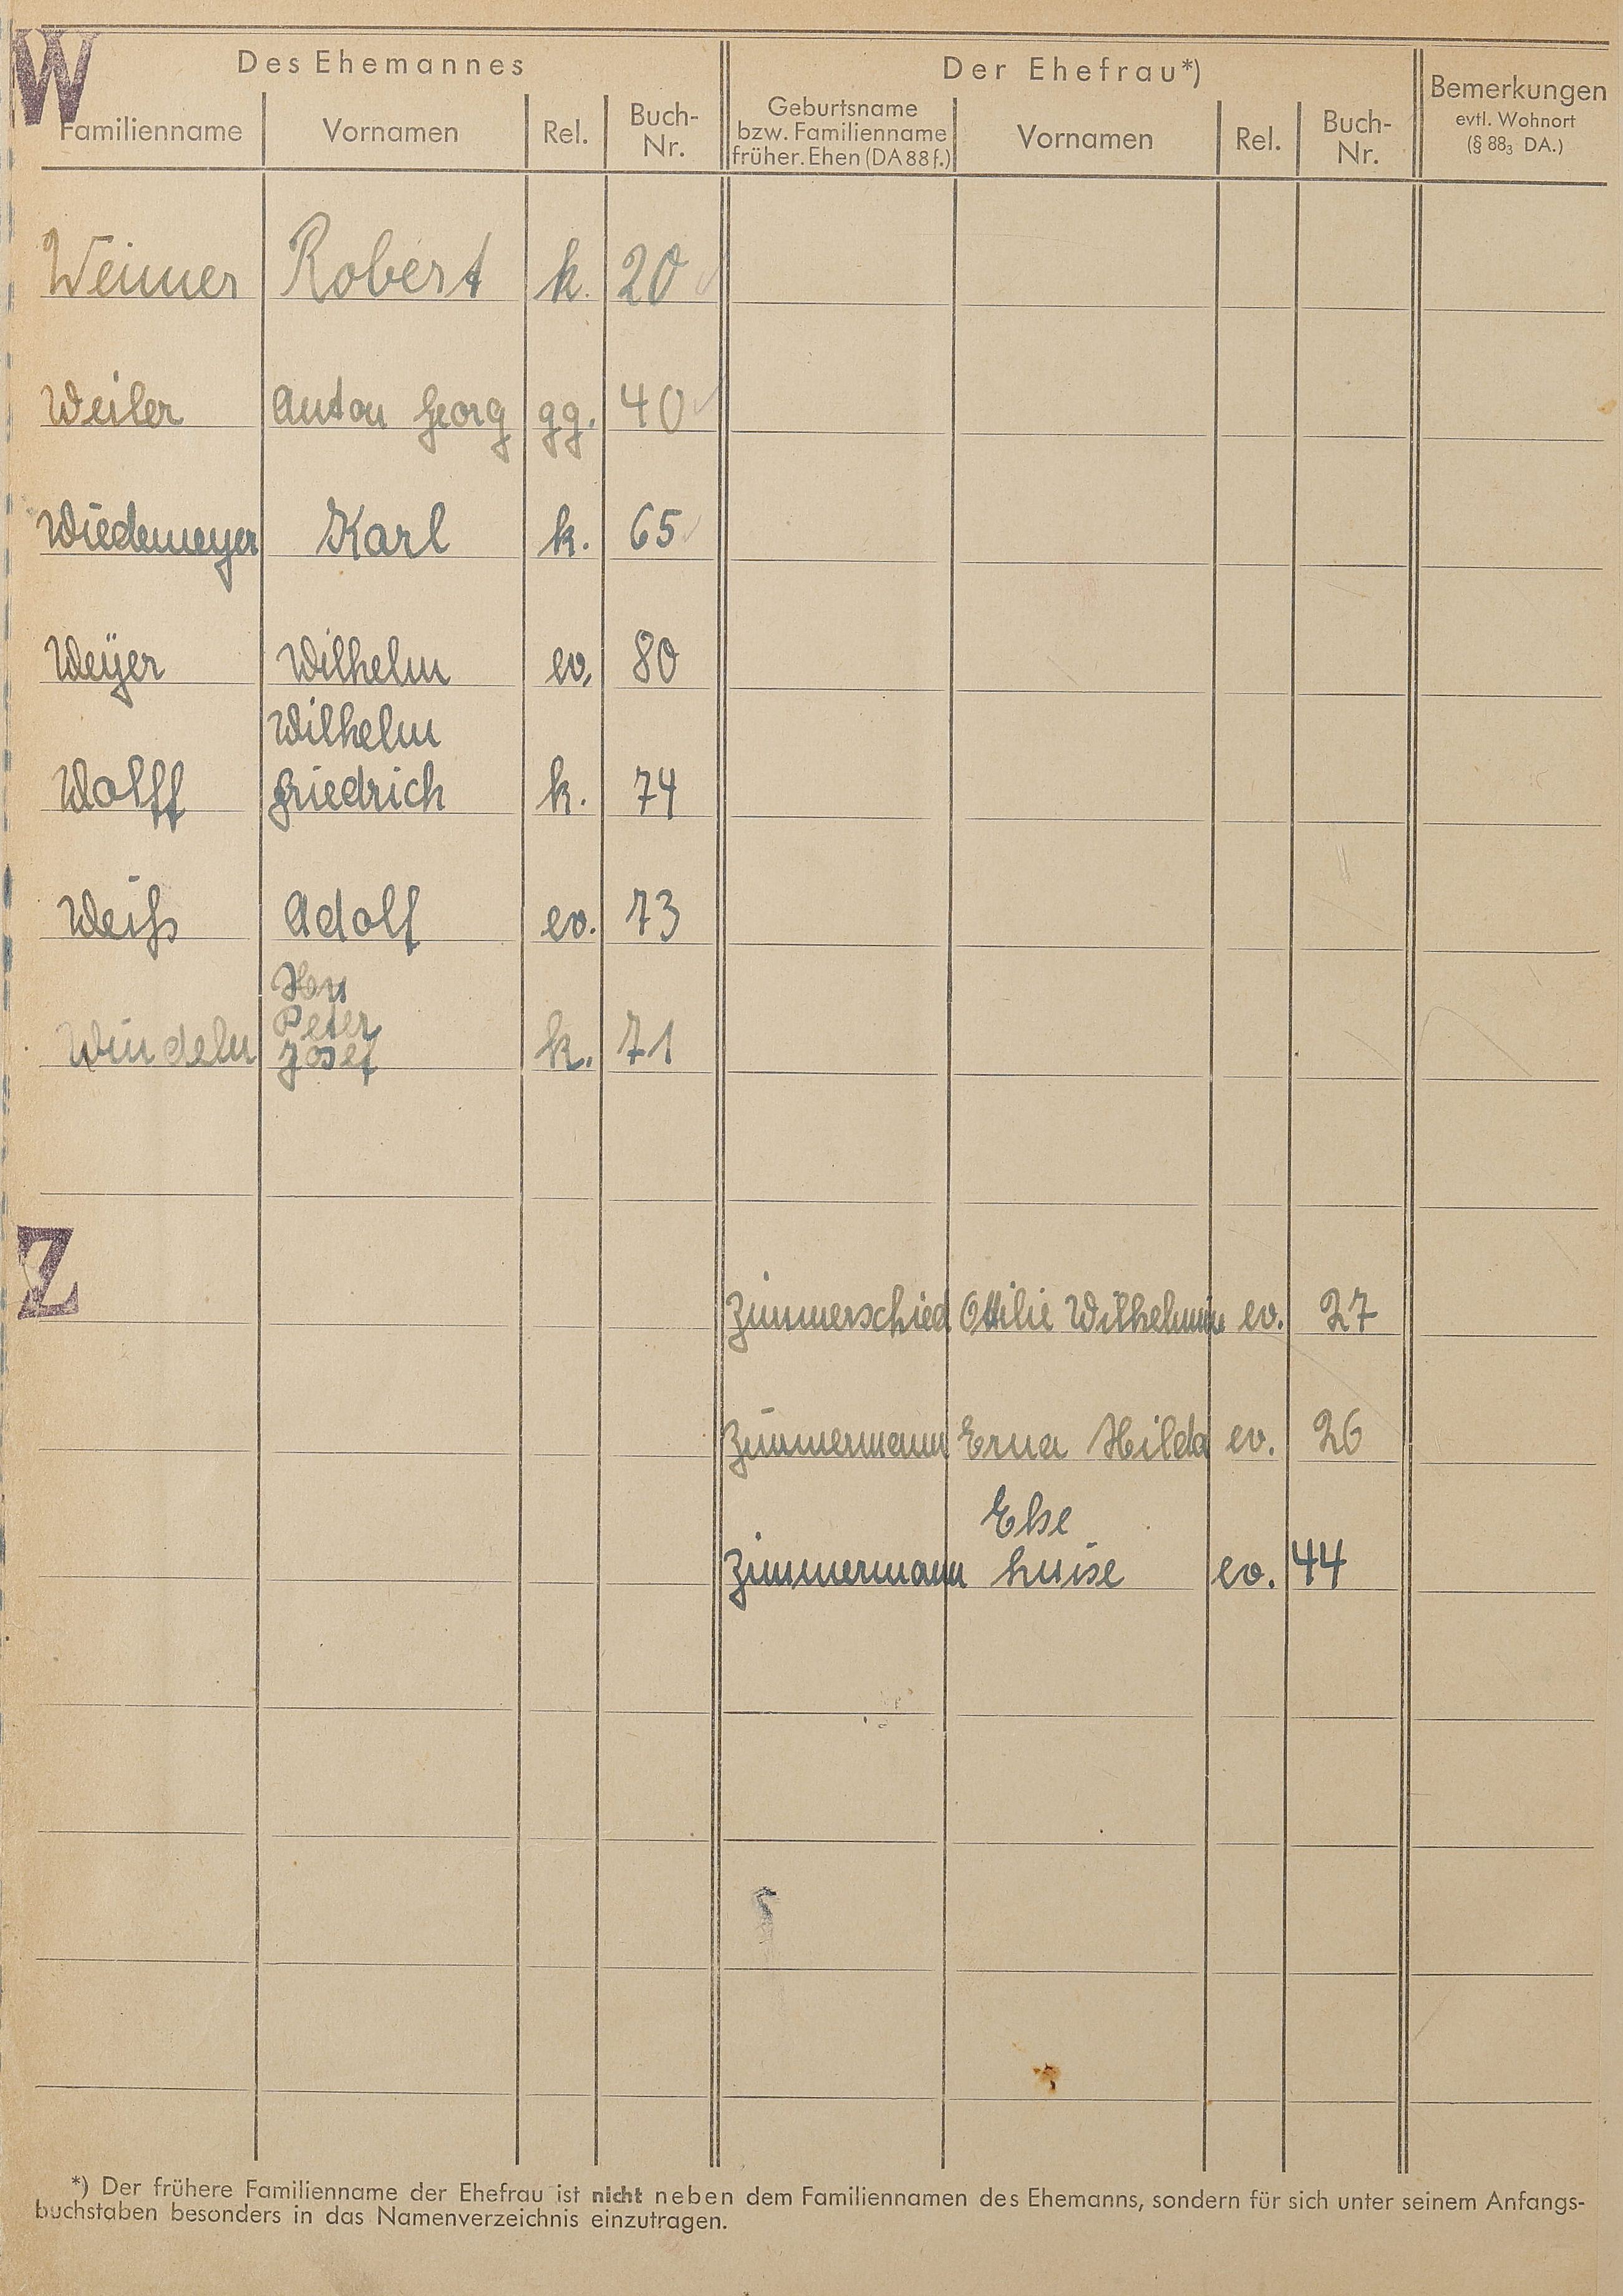 W
Des Ehemannes
Der Ehefrau*)
Bemerkungen
evtl. Wohnort
(§ 88₃ DA.)
Familienname Vornamen Rel. Buch-Nr.
Geburtsname
bzw. Familienname
früher. Ehen (DA 88 f.)
Vornamen Rel. Buch-Nr.
Weimer Robert k. 20
Weiler Anton Georg gg. 40
Wiedemeyer Karl k. 65
Weyer Wilhelm ev. 80
Wilhelm
Wolff Friedrich k. 74
Weiß Adolf ev. 73
Peter
Windeln Josef k. 71
Z
Zimmerschied Ottilie Wilhelmine ev. 27
Zimmermann Erna Hilda ev. 26
Else
Zimmermann Luise ev. 44
*) Der frühere Familienname der Ehefrau ist nicht neben dem Familiennamen des Ehemanns, sondern für sich unter seinem Anfangs-
buchstaben besonders in das Namenverzeichnis einzutragen.